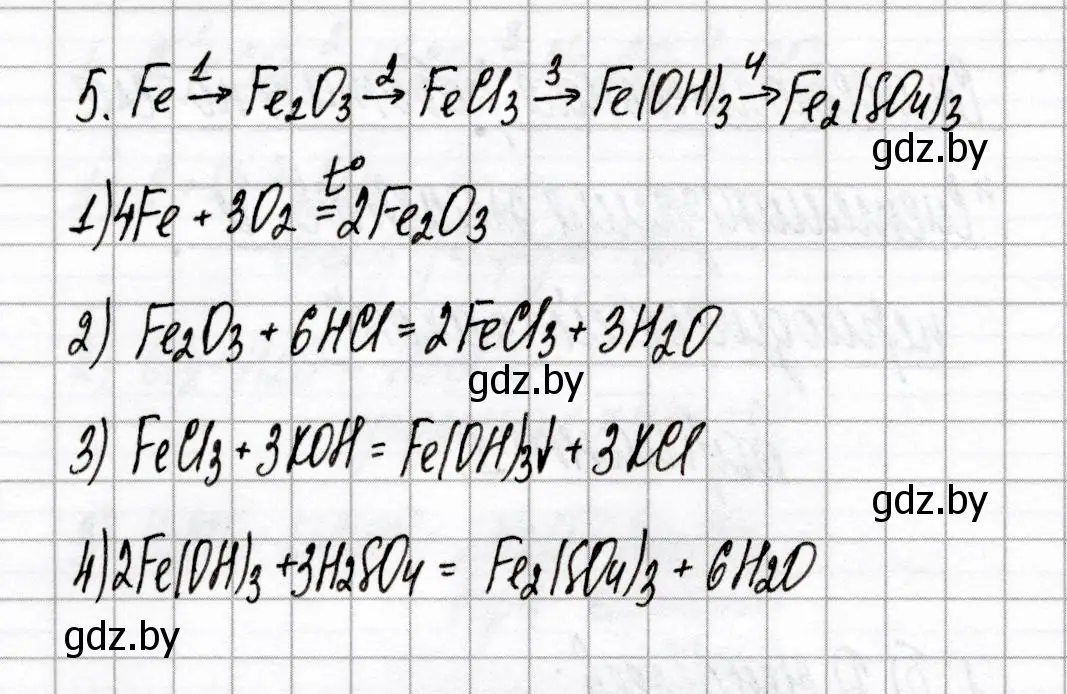 5. Fe 1→ Fe₂O₃ 2→ FeCl₃ 3→ Fe(OH)₃ 4→ Fe₂(SO₄)₃
gdz.by
1) 4Fe + 3O₂ t°= 2Fe₂O₃
2) Fe₂O₃ + 6HCl = 2FeCl₃ + 3H₂O
gdz.by
3) FeCl₃ + 3KOH = Fe(OH)₃↓ + 3KCl
gdz.by
4) 2Fe(OH)₃ + 3H₂SO₄ = Fe₂(SO₄)₃ + 6H₂O
gdz.by